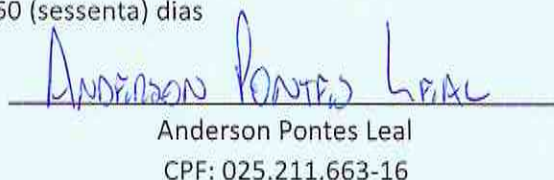 60 (sessenta) dias
ANDERSON PONTES LEAL
Anderson Pontes Leal
CPF: 025.211.663-16